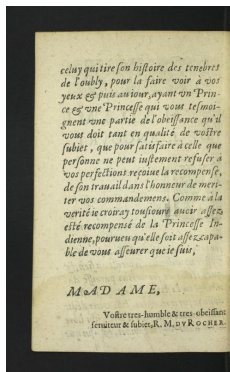 celuy qui tire son histoire des tenebres
de l'oubly, pour la faire voir à vos
yeux & puis au iour, ayant vn Prin-
ce & vne Princesse qui vous tesmoi-
gnent vne partie de l'obeissance qu'il
vous doit tant en qualité de vostre
subiet, que pour satisfaire à celle que
personne ne peut iustement refuser à
vos perfections reçoiue la recompense,
de son trauail dans l'honneur de meri-
ter vos commandemens. Comme à la
verité ie croiray tousiours auoir assez
esté recompensé de la Princesse In-
dienne, pourueu qu'elle soit assez capa-
ble de vous asseurer que ie suis,
MADAME,
Vostre tres-humble & tres-obeissant
seruiteur & subiet, R. M. DV ROCHER.